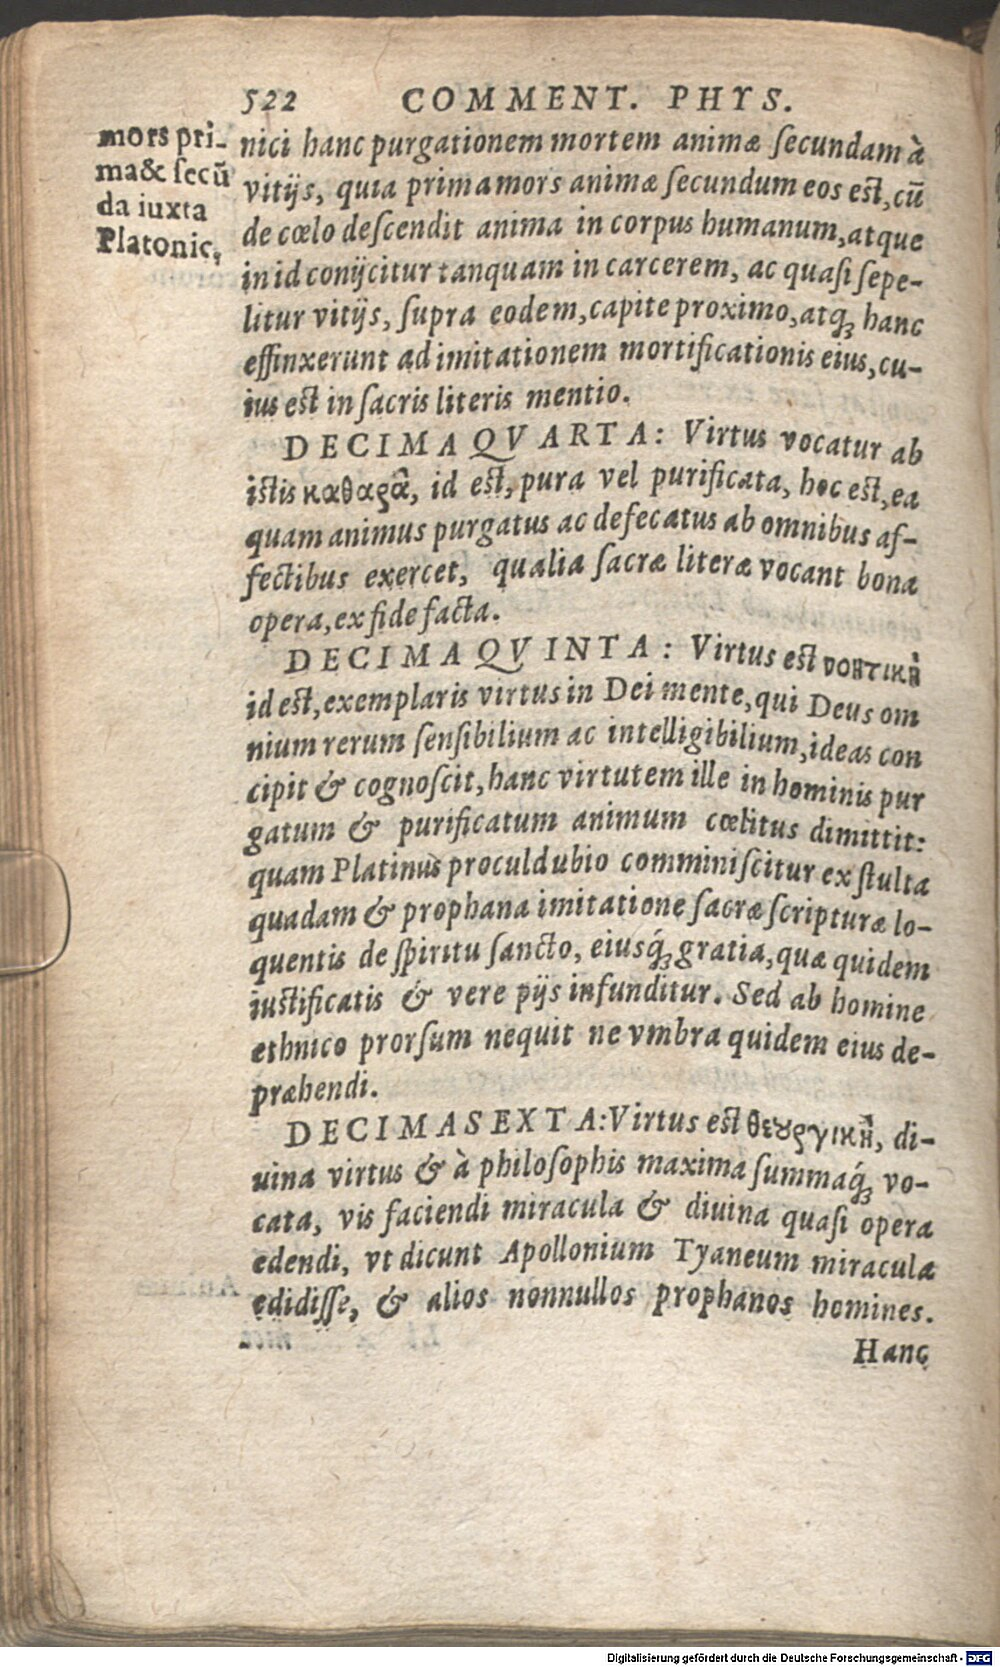 522 COMMENT. PHYS.
mors pri-
ma& secū
da iuxta
Platonic.
nici hanc purgationem mortem animæ secundam à
vitijs, quia prima mors animæ secundum eos est, cū
de cœlo descendit anima in corpus humanum, atque
in id conijcitur tanquam in carcerem, ac quasi sepe-
litur vitijs, supra eodem, capite proximo, atq; hanc
effinxerunt ad imitationem mortificationis eius, cu-
ius est in sacris literis mentio.
DECIMAQVARTA: Virtus vocatur ab
istis καθαρὰ, id est, pura vel purificata, hoc est, ea
quam animus purgatus ac defecatus ab omnibus af-
fectibus exercet, qualia sacræ literæ vocant bona
opera, ex fide facta.
DECIMAQVINTA: Virtus est νοητικὴ
id est, exemplaris virtus in Dei mente, qui Deus om
nium rerum sensibilium ac intelligibilium, ideas con
cipit & cognoscit, hanc virtutem ille in hominis pur
gatum & purificatum animum cœlitus dimittit:
quam Platinus proculdubio comminiscitur ex stulta
quadam & prophana imitatione sacræ scripturæ lo-
quentis de spiritu sancto, eiusq́; gratia, quæ quidem
iustificatis & vere pijs infunditur. Sed ab homine
ethnico prorsum nequit ne vmbra quidem eius de-
præhendi.
DECIMASEXTA: Virtus est θεουργικὴ, di-
uina virtus & à philosophis maxima summaq́; vo-
cata, vis faciendi miracula & diuina quasi opera
edendi, vt dicunt Apollonium Tyaneum miracula
edidisse, & alios nonnullos prophanos homines.
Hanc
Digitalisierung gefördert durch die Deutsche Forschungsgemeinschaft - DFG